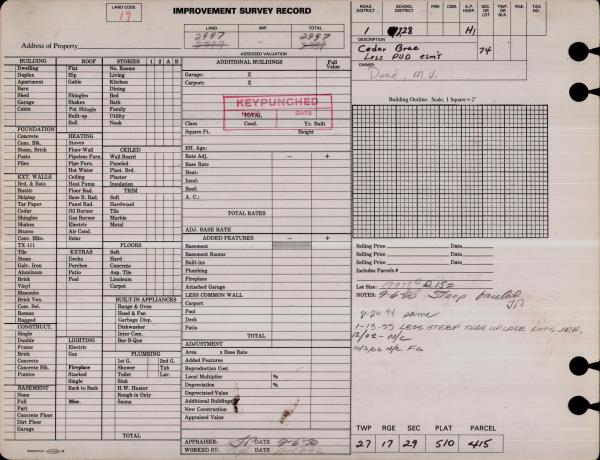 LAND CODE
19
IMPROVEMENT SURVEY RECORD
LAND IMP. TOTAL
2997 2997
ASSESSED VALUATION
Address of Property
ROAD DISTRICT SCHOOL DISTRICT FIRE CEM. A.P. HOSP. SEC. OR LOT TWP. OR BLK. RGE. TAX NO.
1 28 H1 74
DESCRIPTION
Cedar Brae
Less PUD esm't
OWNER:
BUILDING ROOF STORIES 1 2 A B
Dwelling Flat No. Rooms
Duplex Hip Living
Apartment Gable Kitchen
Barn Dining
Shed Shingles Bed
Garage Shakes Bath
Cabin Pat Shingle Family
Built-up Utility
Roll Nook
FOUNDATION
Concrete HEATING
Conc. Blk. Stoves CEILED
Stone, Brick Floor-Wall Wall Board
Posts Pipeless Furn. Paneled
Piles Pipe Furn. Plast. Brd.
Hot Water Plaster
EXT. WALLS Ceiling Insulation
Brd. & Bats Heat Pump TRIM
Rustic Floor Rad.
Shiplap Base B. Rad. Soft
Tar Paper Panel Rad. Hardwood
Cedar Oil Burner Tile
Shingles Gas Burner Marble
Shakes Electric Metal
Stucco Air Cond.
Conc. Blks. Solar FLOORS
TX-111
Tile EXTRAS Soft
Stone Decks Hard
Galv. Iron Porches Concrete
Aluminum Patio Asp. Tile
Brick Pool Linoleum
Vinyl Carpet
Masonite
Brick Ven. BUILT-IN APPLIANCES
Com. Sel. Range & Oven
Roman Hood & Fan
Rugged Garbage Disp.
CONSTRUCT. Dishwasher
Single Inter Com.
Double LIGHTING Bar-B-Que
Frame Electric
Brick Gas PLUMBING
Concrete 1st G. 2nd G.
Concrete Blk. Fireplace Shower Tub
Pumice Stacked Toilet Lav.
Single Sink
BASEMENT Back to Back H.W. Heater
None Rough-in Only
Full Misc. Sauna
Part
Concrete Floor
Dirt Floor
Garage
TOTAL
ADDITIONAL BUILDINGS Full Value
Garage: X
Carport: X
KEYPUNCHED
DATE
TOTAL
Class Cond. Yr. Built
Square Ft. Height
Eff. Age:
Rate Adj. − +
Base Rate
Heat:
Insul:
Roof:
A. C.:
TOTAL RATES
ADJ. BASE RATE
ADDED FEATURES − +
Basement
Basement Rooms
Built-ins
Plumbing
Fireplace
Attached Garage
LESS COMMON WALL
Carport
Pool
Deck
TOTAL
ADJUSTMENT
Area x Base Rate
Added Features
Reproduction Cost
Local Multiplier %
Depreciation %
Depreciated Value
Additional Buildings
New Construction
Appraised Value
APPRAISER: DATE 9-6-90
WORKED BY: DATE
Building Outline. Scale, 1 Square = 2'
Selling Price Date
Selling Price Date
Selling Price Date
Includes Parcels #
Lot Size:
NOTES: 9-6-90 Steep
7-20-94 same
1-13-99 LESS STEEP THAN UPCREEK LOTS, JRH
12/02 - N/C
10/3/06 N/C FG
TWP RGE SEC PLAT PARCEL
27 17 29 510 415